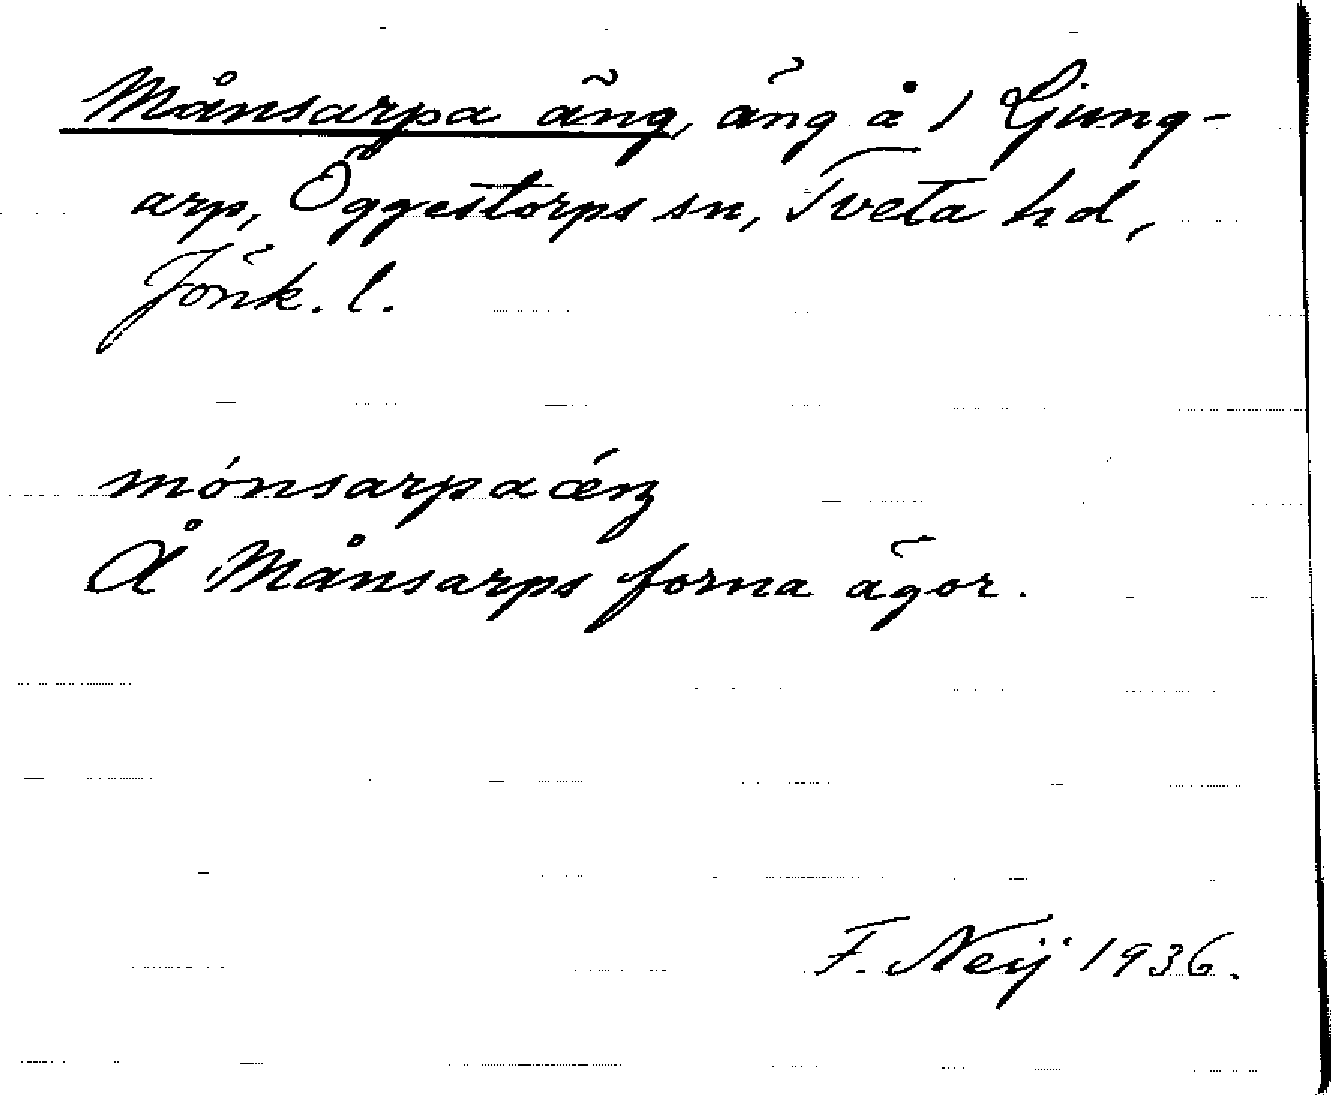 Månsarpa äng, äng å 1 Ljung-
arp, Öggestorps sn, Tveta hd,
Jönk. l.
mónsarpaæ̀ŋ
Å Månsarps forna ägor.
F. Neij 1936.